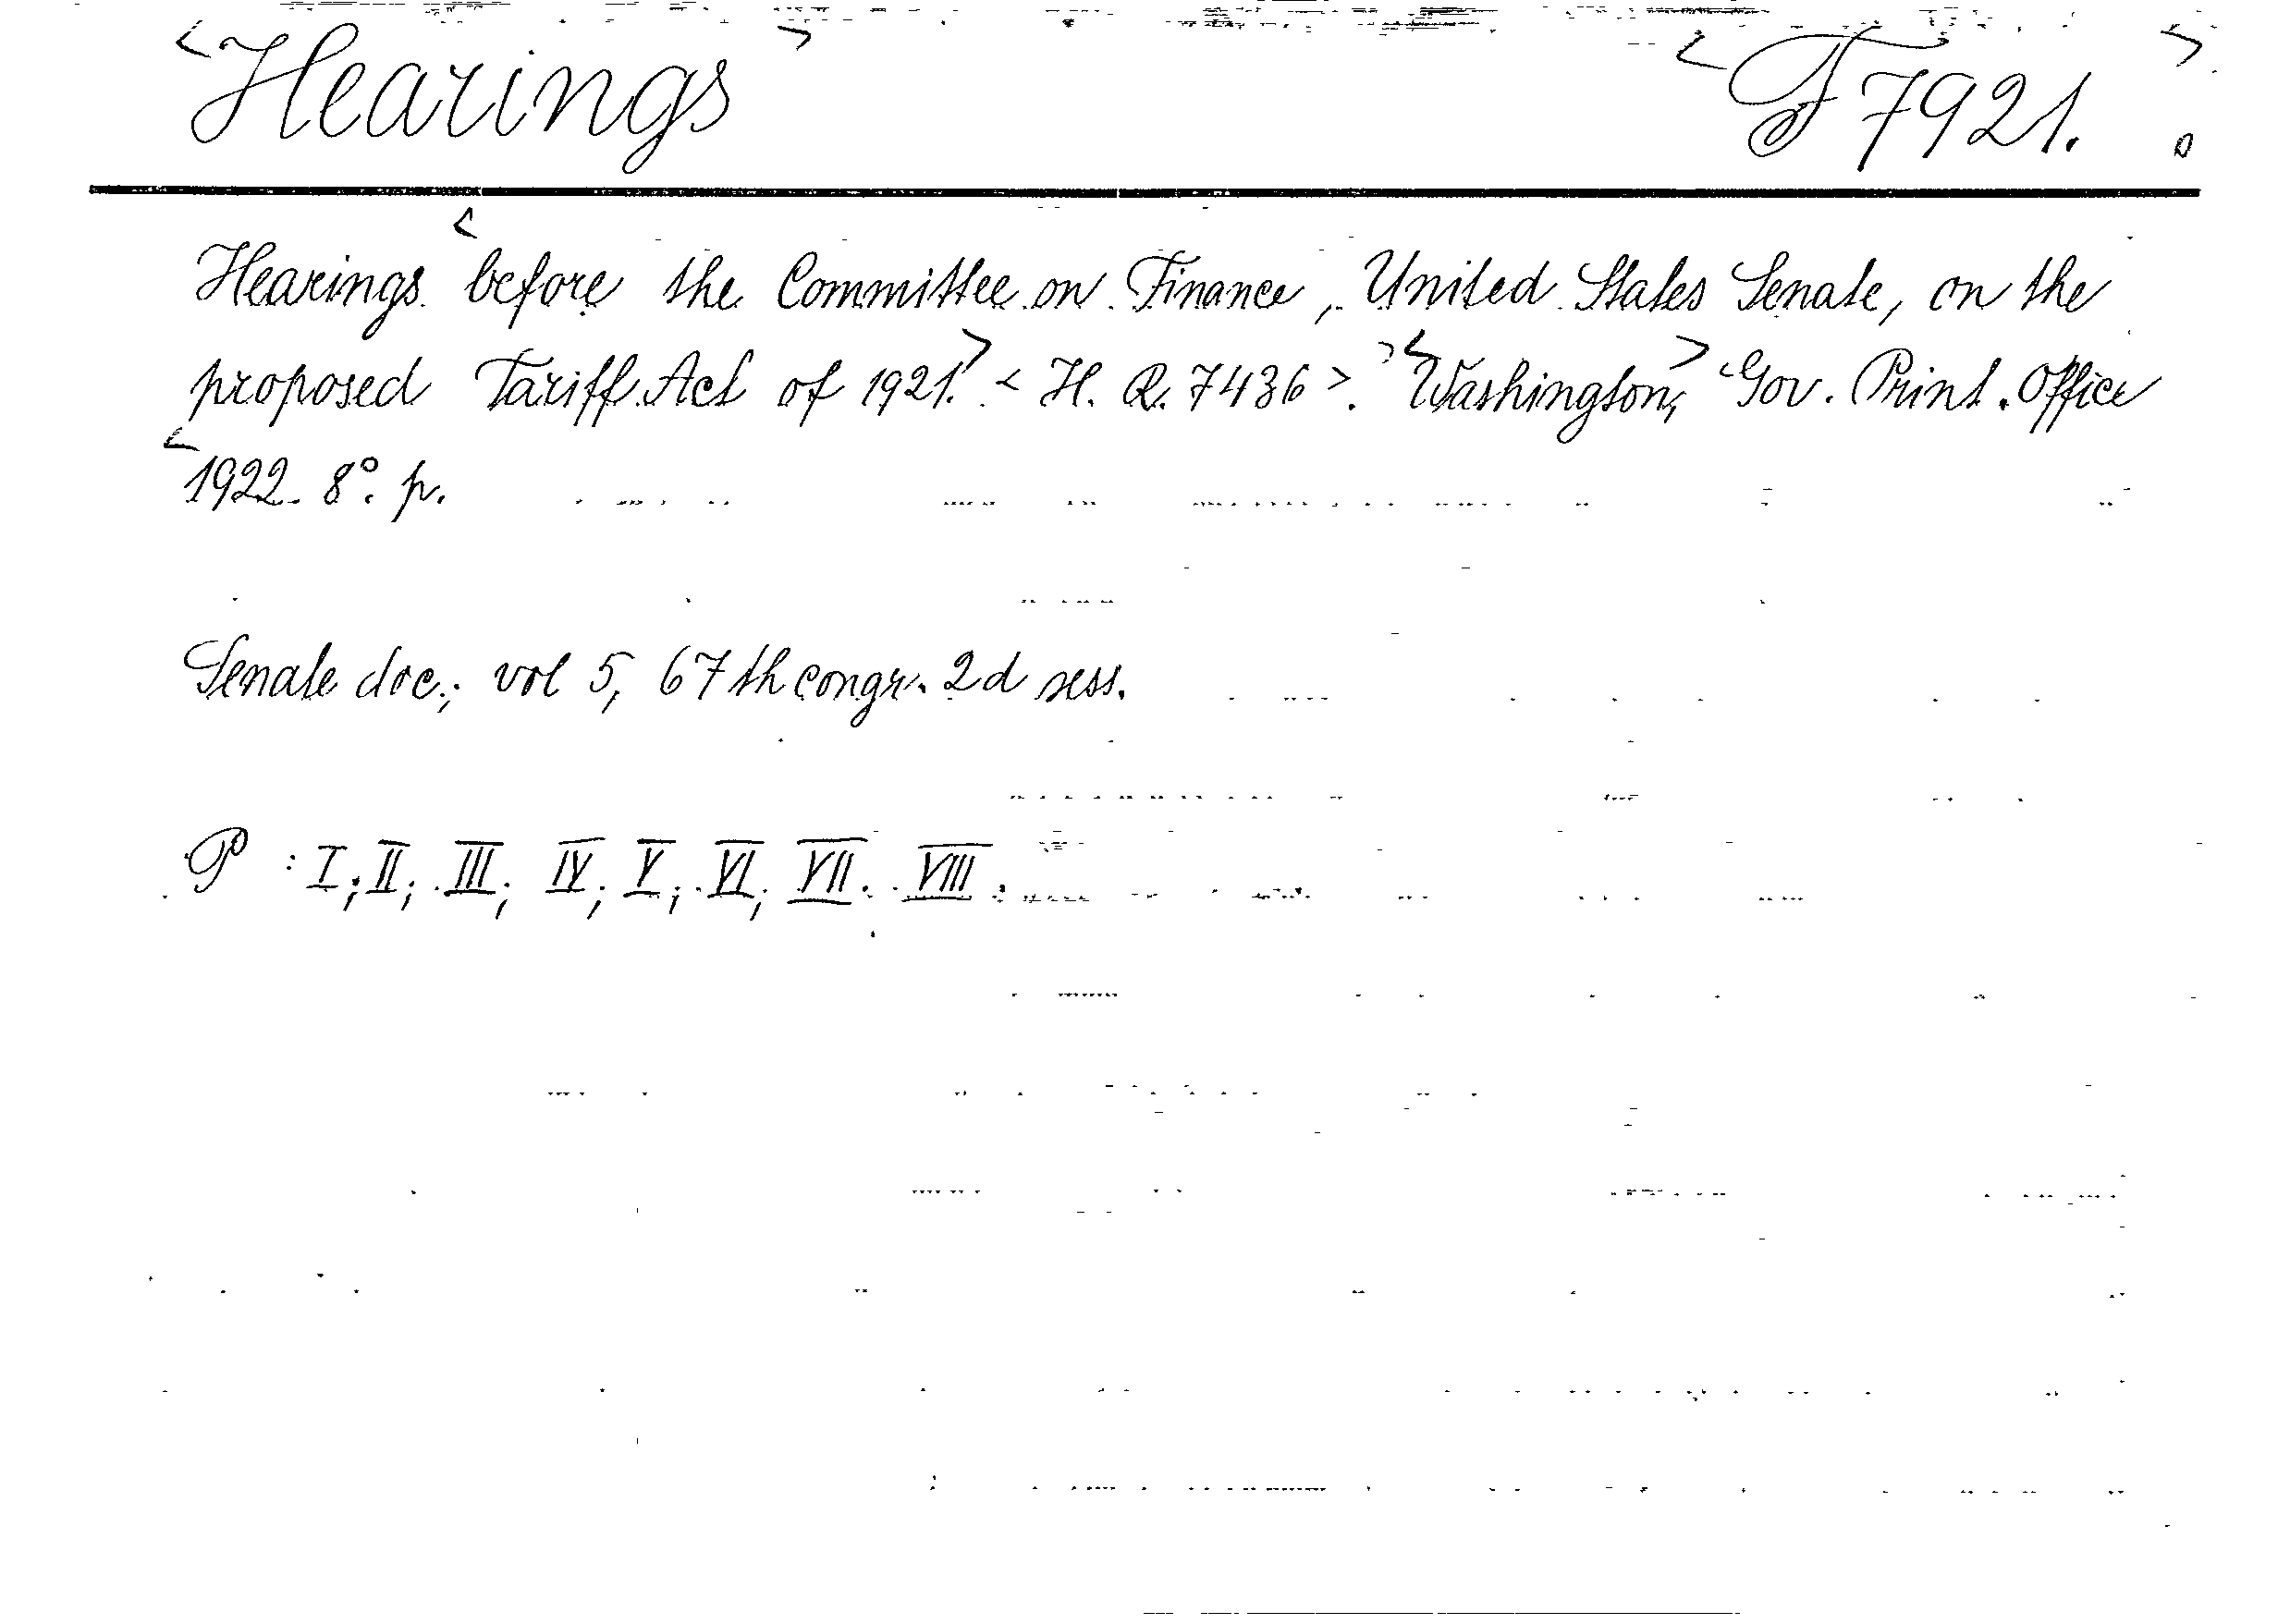 <Hearings> <F7921.>
Hearings <before the Committee on Finance, United States Senate, on the
proposed Tariff Act of 1921.> <H. R. 7436>. <Washington,> Gov. Print. Office
<1922. 8°. p.
Senate doc.; vol 5, 67th congr. 2d sess.
P : I; II; III; IV; V; VI; VII. VIII.